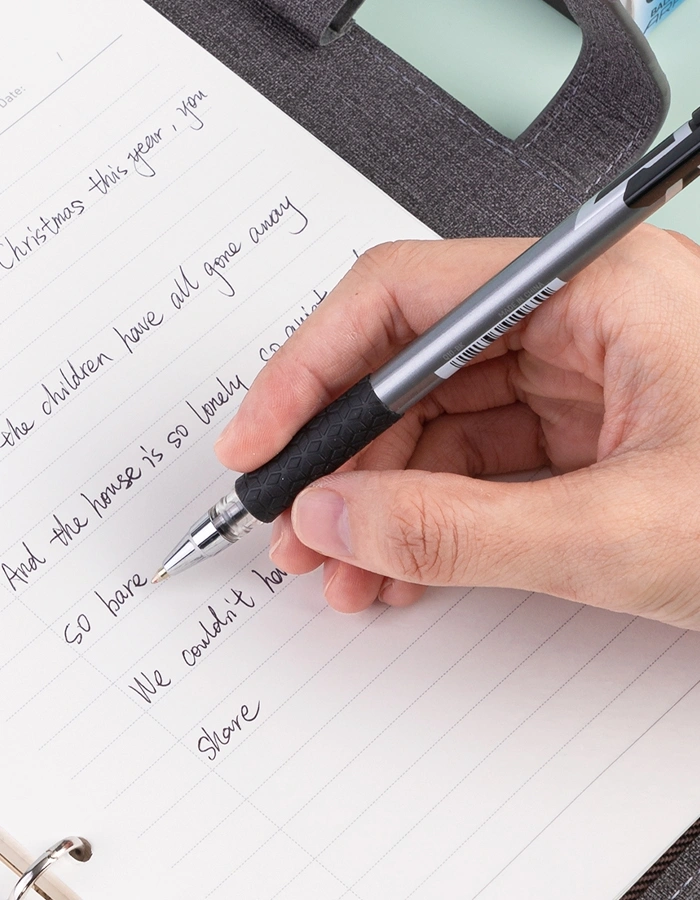 Date:
Christmas this year, you
the children have all gone away
And the house is so lonely so quiet
so bare
We couldn't
share